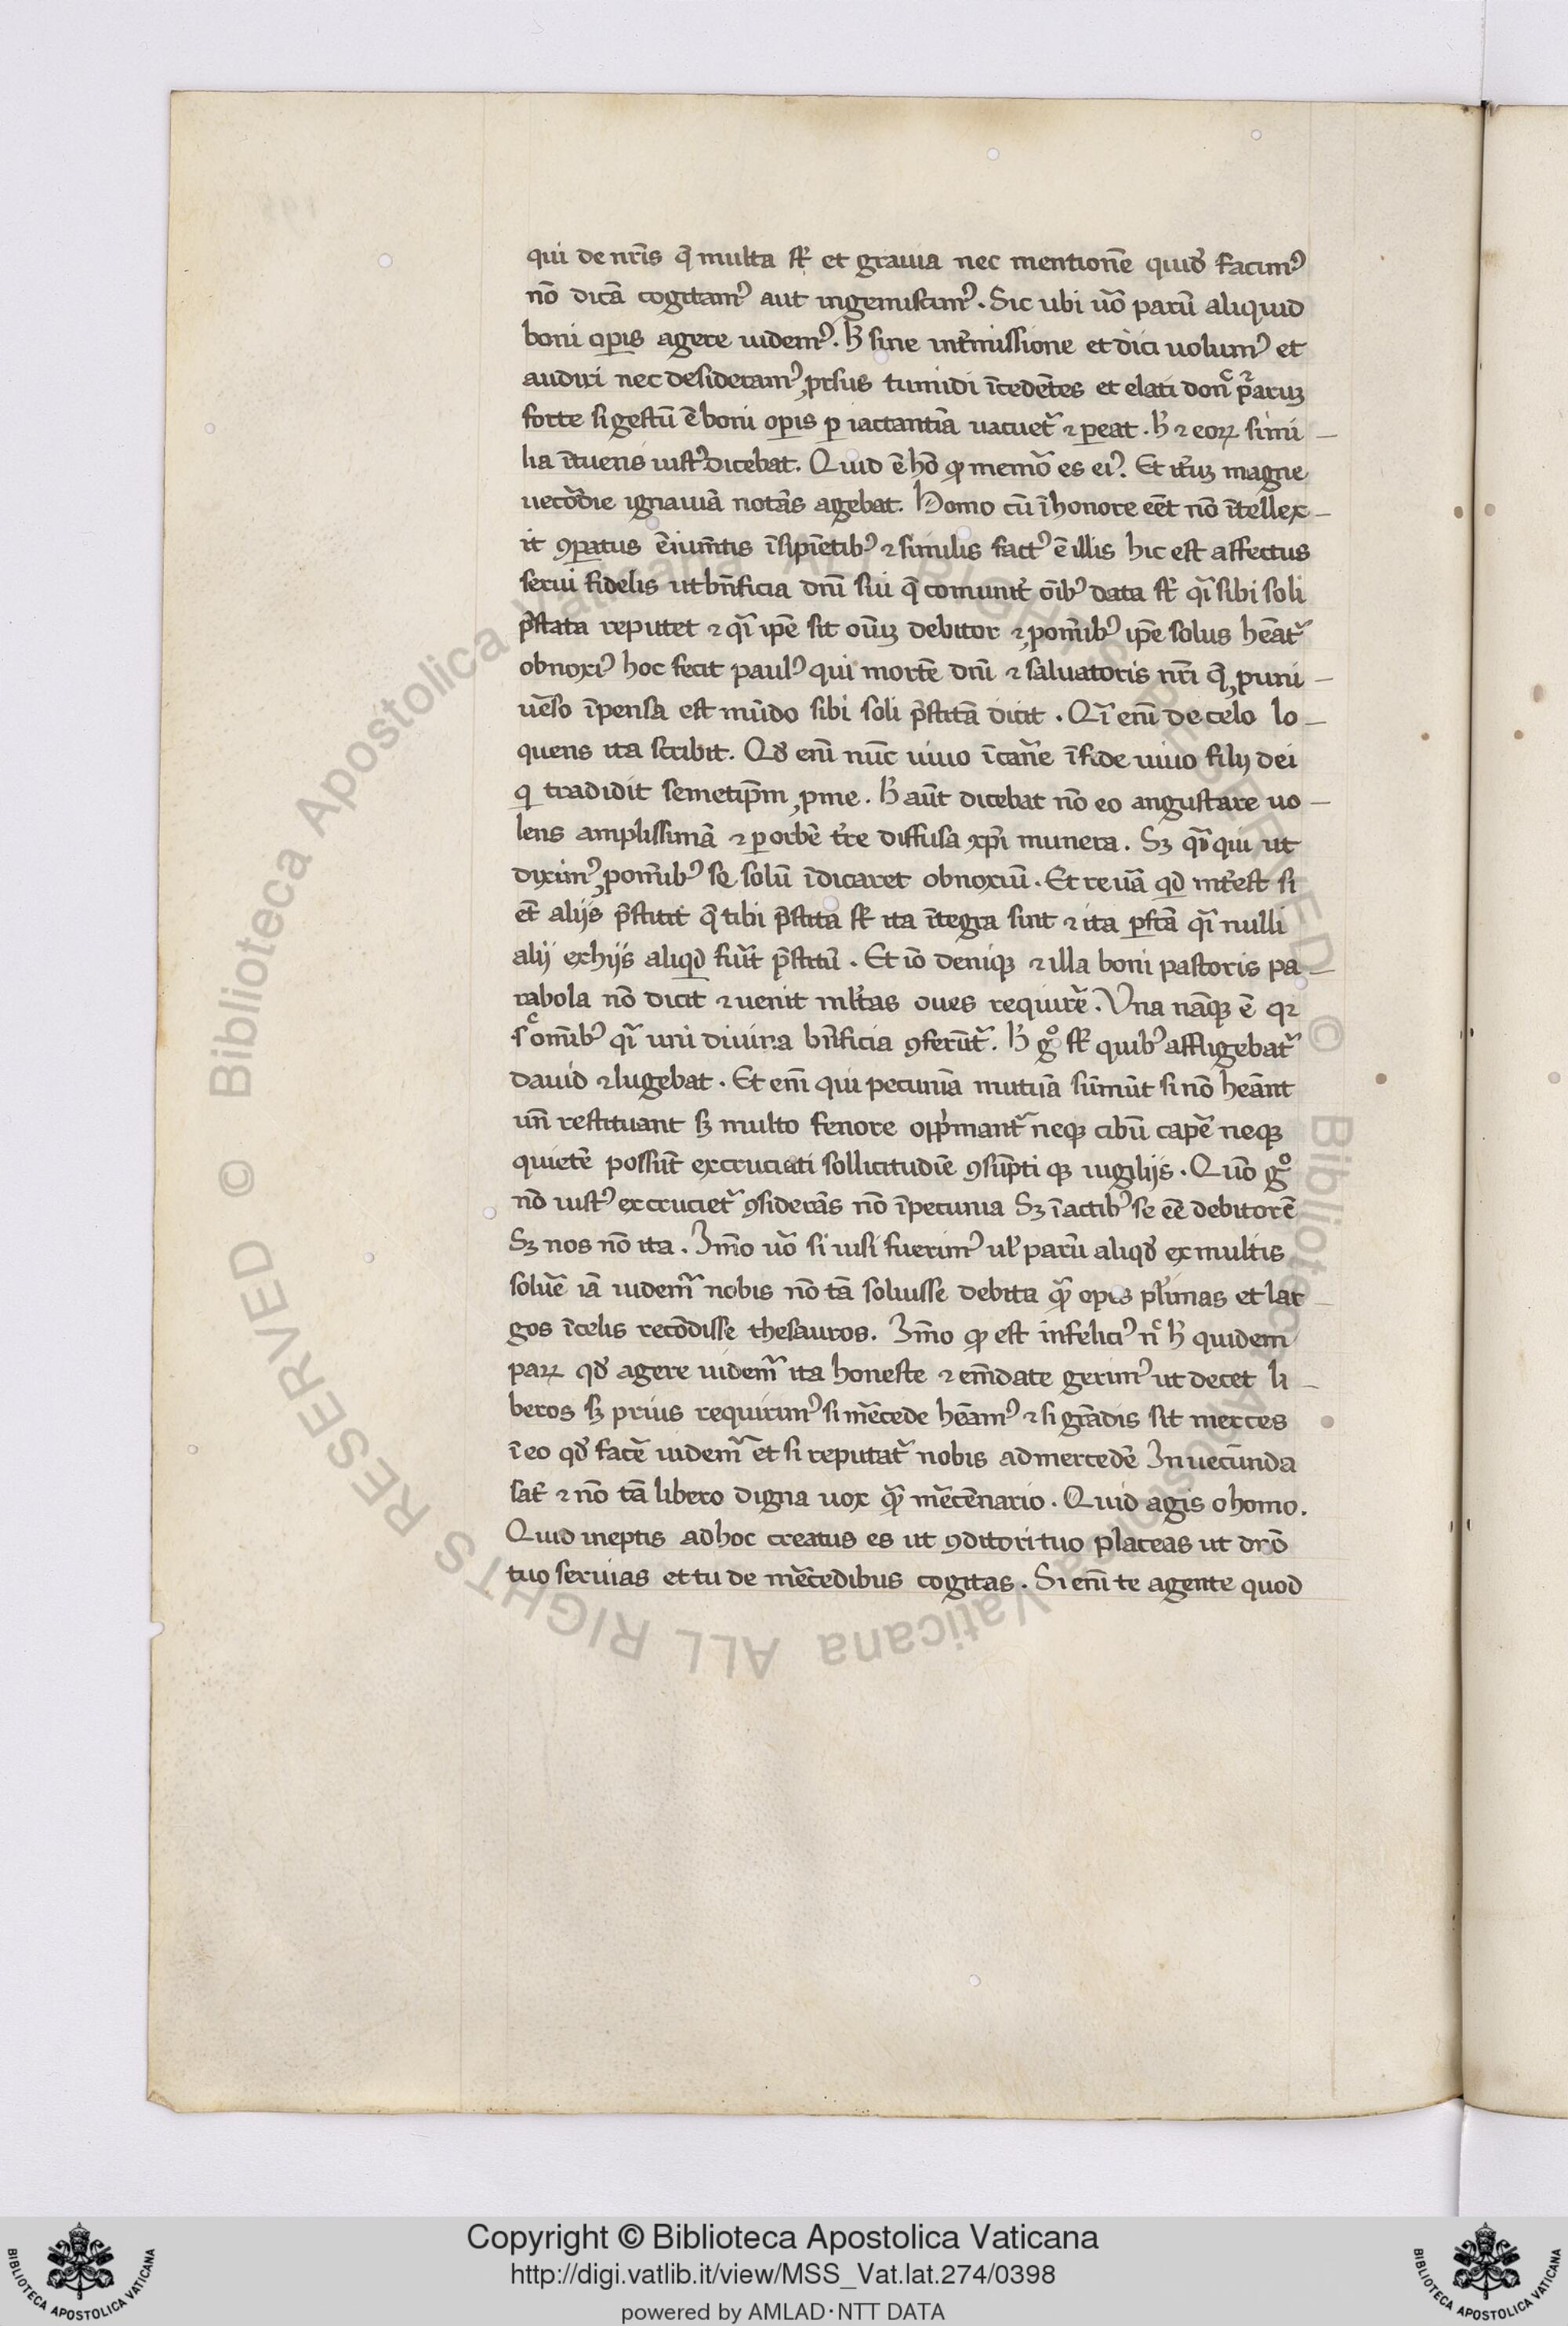 qui de nr̄is q̄ multa st̄ et grauia nec mentionē quid̄ facimꝰ
nō dicā cogitamꝰ aut ingemiscimꝰ. Sic ubi uō parū aliquid
boni oꝑis agere uidemꝰ. h̄ sine int̄missione et dici uolumꝰ et
audiri nec desideramꝰ ꝓrsus tumidi īcedētes et elati donͨ p̄aruꝫ
forte si gestū ē boni oꝑis ꝑ iactantiā uacuet᷑ ⁊ ꝑeat. h̄ ⁊ eoꝝ simi
lia ītuens iustꝰ dicebat. Quid ē hō ꝙ memō es eiꝰ. Et itꝫ magne
uecōdie ignauiā notās agebat. Homo cū ī honore eēt nō ītellex
it ꝯꝑatus ē iumētis īsipiētibꝰ ⁊ similis factꝰ ē illis hic est affectus
serui fidelis ut bn̄ficia dn̄i sui q̄ comunit̄ oībꝰ data st̄ q̄i sibi soli
p̄stata reputet ⁊ q̄i ip̄e sit oīuꝫ debitor ⁊ ꝓ om̄ibꝰ ip̄e solus heāt᷑
obnoxiꝰ hoc fecit paulꝰ qui mortē dn̄i ⁊ saluatoris nr̄i q̄ ꝓ uni
uēso īpensa est mūdo sibi soli p̄stitā dicit. Qī enī de celo lo
quens ita scribit. Qd̄ enī nūc uiuo ī carne ī fide uiuo filij dei
q tradidit semetip̄m ꝓ me. h̄ aūt dicebat nō eo angustare uo
lens amplissimā ⁊ ꝑ orbē tr̄e diffusa xp̄i munera. Sꝫ qui ut
diximꝰ ꝓ om̄ibꝰ se solū īdicaret obnoxiū. Et reuā qd̄ int̄est si
et̄ alijs p̄stitit q̄ tibi p̄stita st̄ ita ītegra sint ⁊ ita ꝑfcā q̄i nulli
alij ex hijs aliqd̄ fuit p̄stitū. Et iō deniqꝫ ⁊ illa boni pastoris pa
rabola nō dicit ⁊ uenit ml̄tas oues requirē. Una nāqꝫ ē qꝛ
sͨ om̄ibꝰ q̄i uni diuina bn̄ficia ꝯferūt᷑. h̄ gͦ st̄ quibꝰ affligebat᷑
dauid ⁊ lugebat. Et enī qui pecuniā mutuā sūmūt si nō heānt
un̄ restituant sꝫ multo fenore opp̄mant᷑ neqꝫ cibū capē neqꝫ
quietē possūt excruciati sollicitudīe ꝯsūpti qꝫ uigilijs. Quō gͦ
nō iustꝰ excruciet᷑ ꝯsiderās nō ī pecunia Sꝫ ī actibꝰ se eē debitorē
Sꝫ nos nō ita. Imō uō si uisi fuerimꝰ ul̄ parū aliqd̄ ex multis
soluē iā uidem᷑ nobis nō tā soluisse debita q̄ opes pl̄imas et lar
gos ī celis recōdisse thesauros. Imō ꝙ est infeliciꝰ nͨ h̄ quidem
paꝝ qd̄ agere uidem᷑ ita honeste ⁊ emēdate gerimꝰ ut decet li
beros sꝫ prius requirimꝰ si mēcede heāmꝰ ⁊ si grādis sit merces
ī eo qd̄ facē uidem᷑ et si reputat᷑ nobis ad mercedē Inuecūnda
sat̄ ⁊ nō tā libero digna uox q̄ mēcēnario. Quid agis o homo.
Quid ineptis ad hoc creatus es ut ꝯditori tuo placeas ut dn̄o
tuo seruias et tu de mēcedibus cogitas. Si enī te agente quod
Copyright © Biblioteca Apostolica Vaticana
http://digi.vatlib.it/view/MSS_Vat.lat.274/0398
powered by AMLAD·NTT DATA
BIBLIOTECA APOSTOLICA VATICANA
BIBLIOTECA APOSTOLICA VATICANA
© Biblioteca Apostolica Vaticana ALL RIGHTS RESERVED
© Biblioteca Apostolica Vaticana ALL RIGHTS RESERVED